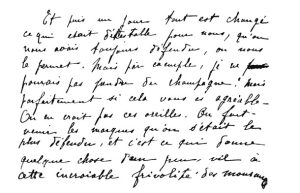 Et puis un jour tout est changé
ce qui était détestable pour nous, qu'on
nous avait toujours défendu, on nous
le permet. Mais par exemple, je ne
pourrais pas prendre du champagne? mais
parfaitement si cela vous est agréable.
On ne croit pas ses oreilles. On fait
venir les marques qu'on s'était le
plus défendu, et c'est ce qui donne
quelque chose d'un peu vil à
cette incroyable frivolité des mourants